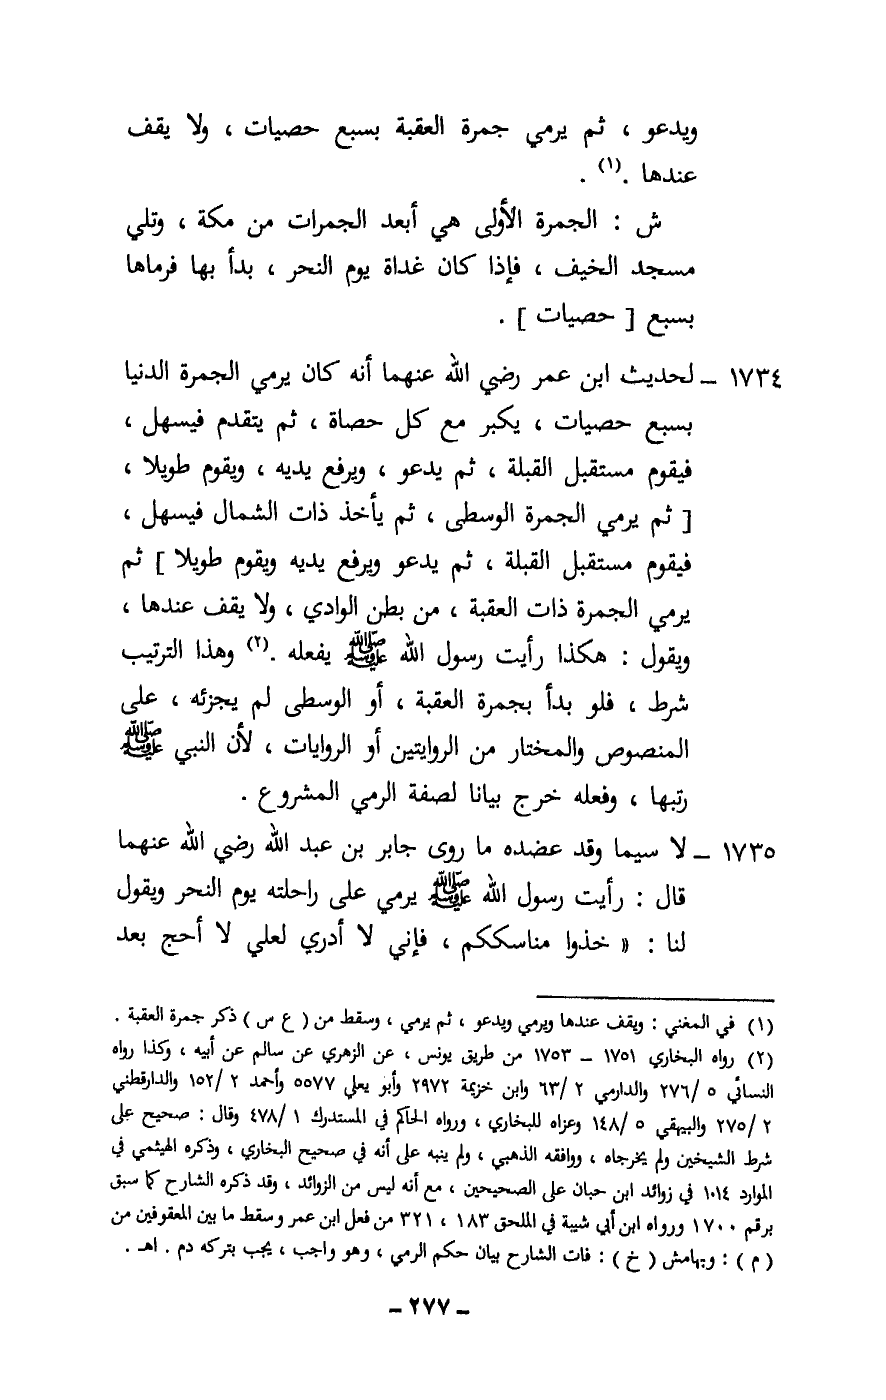 ويدعو ، ثم يرمي جمرة العقبة بسبع حصيات ، ولا يقف
عندها .(١) .
ش : الجمرة الأولى هي أبعد الجمرات من مكة ، وتلي
مسجد الخيف ، فإذا كان غداة يوم النحر ، بدأ بها فرماها
بسبع [ حصيات ] .
١٧٣٤ – لحديث ابن عمر رضي الله عنهما أنه كان يرمي الجمرة الدنيا
بسبع حصيات ، يكبر مع كل حصاة ، ثم يتقدم فيسهل ،
فيقوم مستقبل القبلة ، ثم يدعو ، ويرفع يديه ، ويقوم طويلا ،
[ ثم يرمي الجمرة الوسطى ، ثم يأخذ ذات الشمال فيسهل ،
فيقوم مستقبل القبلة ، ثم يدعو ويرفع يديه ويقوم طويلا ] ثم
يرمي الجمرة ذات العقبة ، من بطن الوادي ، ولا يقف عندها ،
ويقول : هكذا رأيت رسول الله ﷺ يفعله .(٢) وهذا الترتيب
شرط ، فلو بدأ بجمرة العقبة ، أو الوسطى لم يجزئه ، على
المنصوص والمختار من الروايتين أو الروايات ، لأن النبي ﷺ
رتبها ، وفعله خرج بيانا لصفة الرمي المشروع .
١٧٣٥ – لا سيما وقد عضده ما روى جابر بن عبد الله رضي الله عنهما
قال : رأيت رسول الله ﷺ يرمي على راحلته يوم النحر ويقول
لنا : « خذوا مناسككم ، فإني لا أدري لعلي لا أحج بعد
(١) في المغني : ويقف عندها ويرمي ويدعو ، ثم يرمي ، وسقط من ( ع س ) ذكر جمرة العقبة .
(٢) رواه البخاري ١٧٥١ – ١٧٥٣ من طريق يونس ، عن الزهري عن سالم عن أبيه ، وكذا رواه
النسائي ٥ /٢٧٦ والدارمي ٢ /٦٣ وابن خزيمة ٢٩٧٢ وأبو يعلي ٥٥٧٧ وأحمد ٢ /١٥٢ والدارقطني
٢ /٢٧٥ والبيهقي ٥ /١٤٨ وعزاه للبخاري ، ورواه الحاكم في المستدرك ١ /٤٧٨ وقال : صحيح على
شرط الشيخين ولم يخرجاه ، ووافقه الذهبي ، ولم ينبه على أنه في صحيح البخاري ، وذكره الهيثمي في
الموارد ١٠١٤ في زوائد ابن حبان على الصحيحين ، مع أنه ليس من الزوائد ، وقد ذكره الشارح كما سبق
برقم ١٧٠٠ ورواه ابن أبي شيبة في الملحق ١٨٣ ، ٣٢١ من فعل ابن عمر وسقط ما بين المعقوفين من
( م ) : وبهامش ( خ ) : فات الشارح بيان حكم الرمي ، وهو واجب ، يجب بتركه دم . اهـ .
– ٢٧٧ –